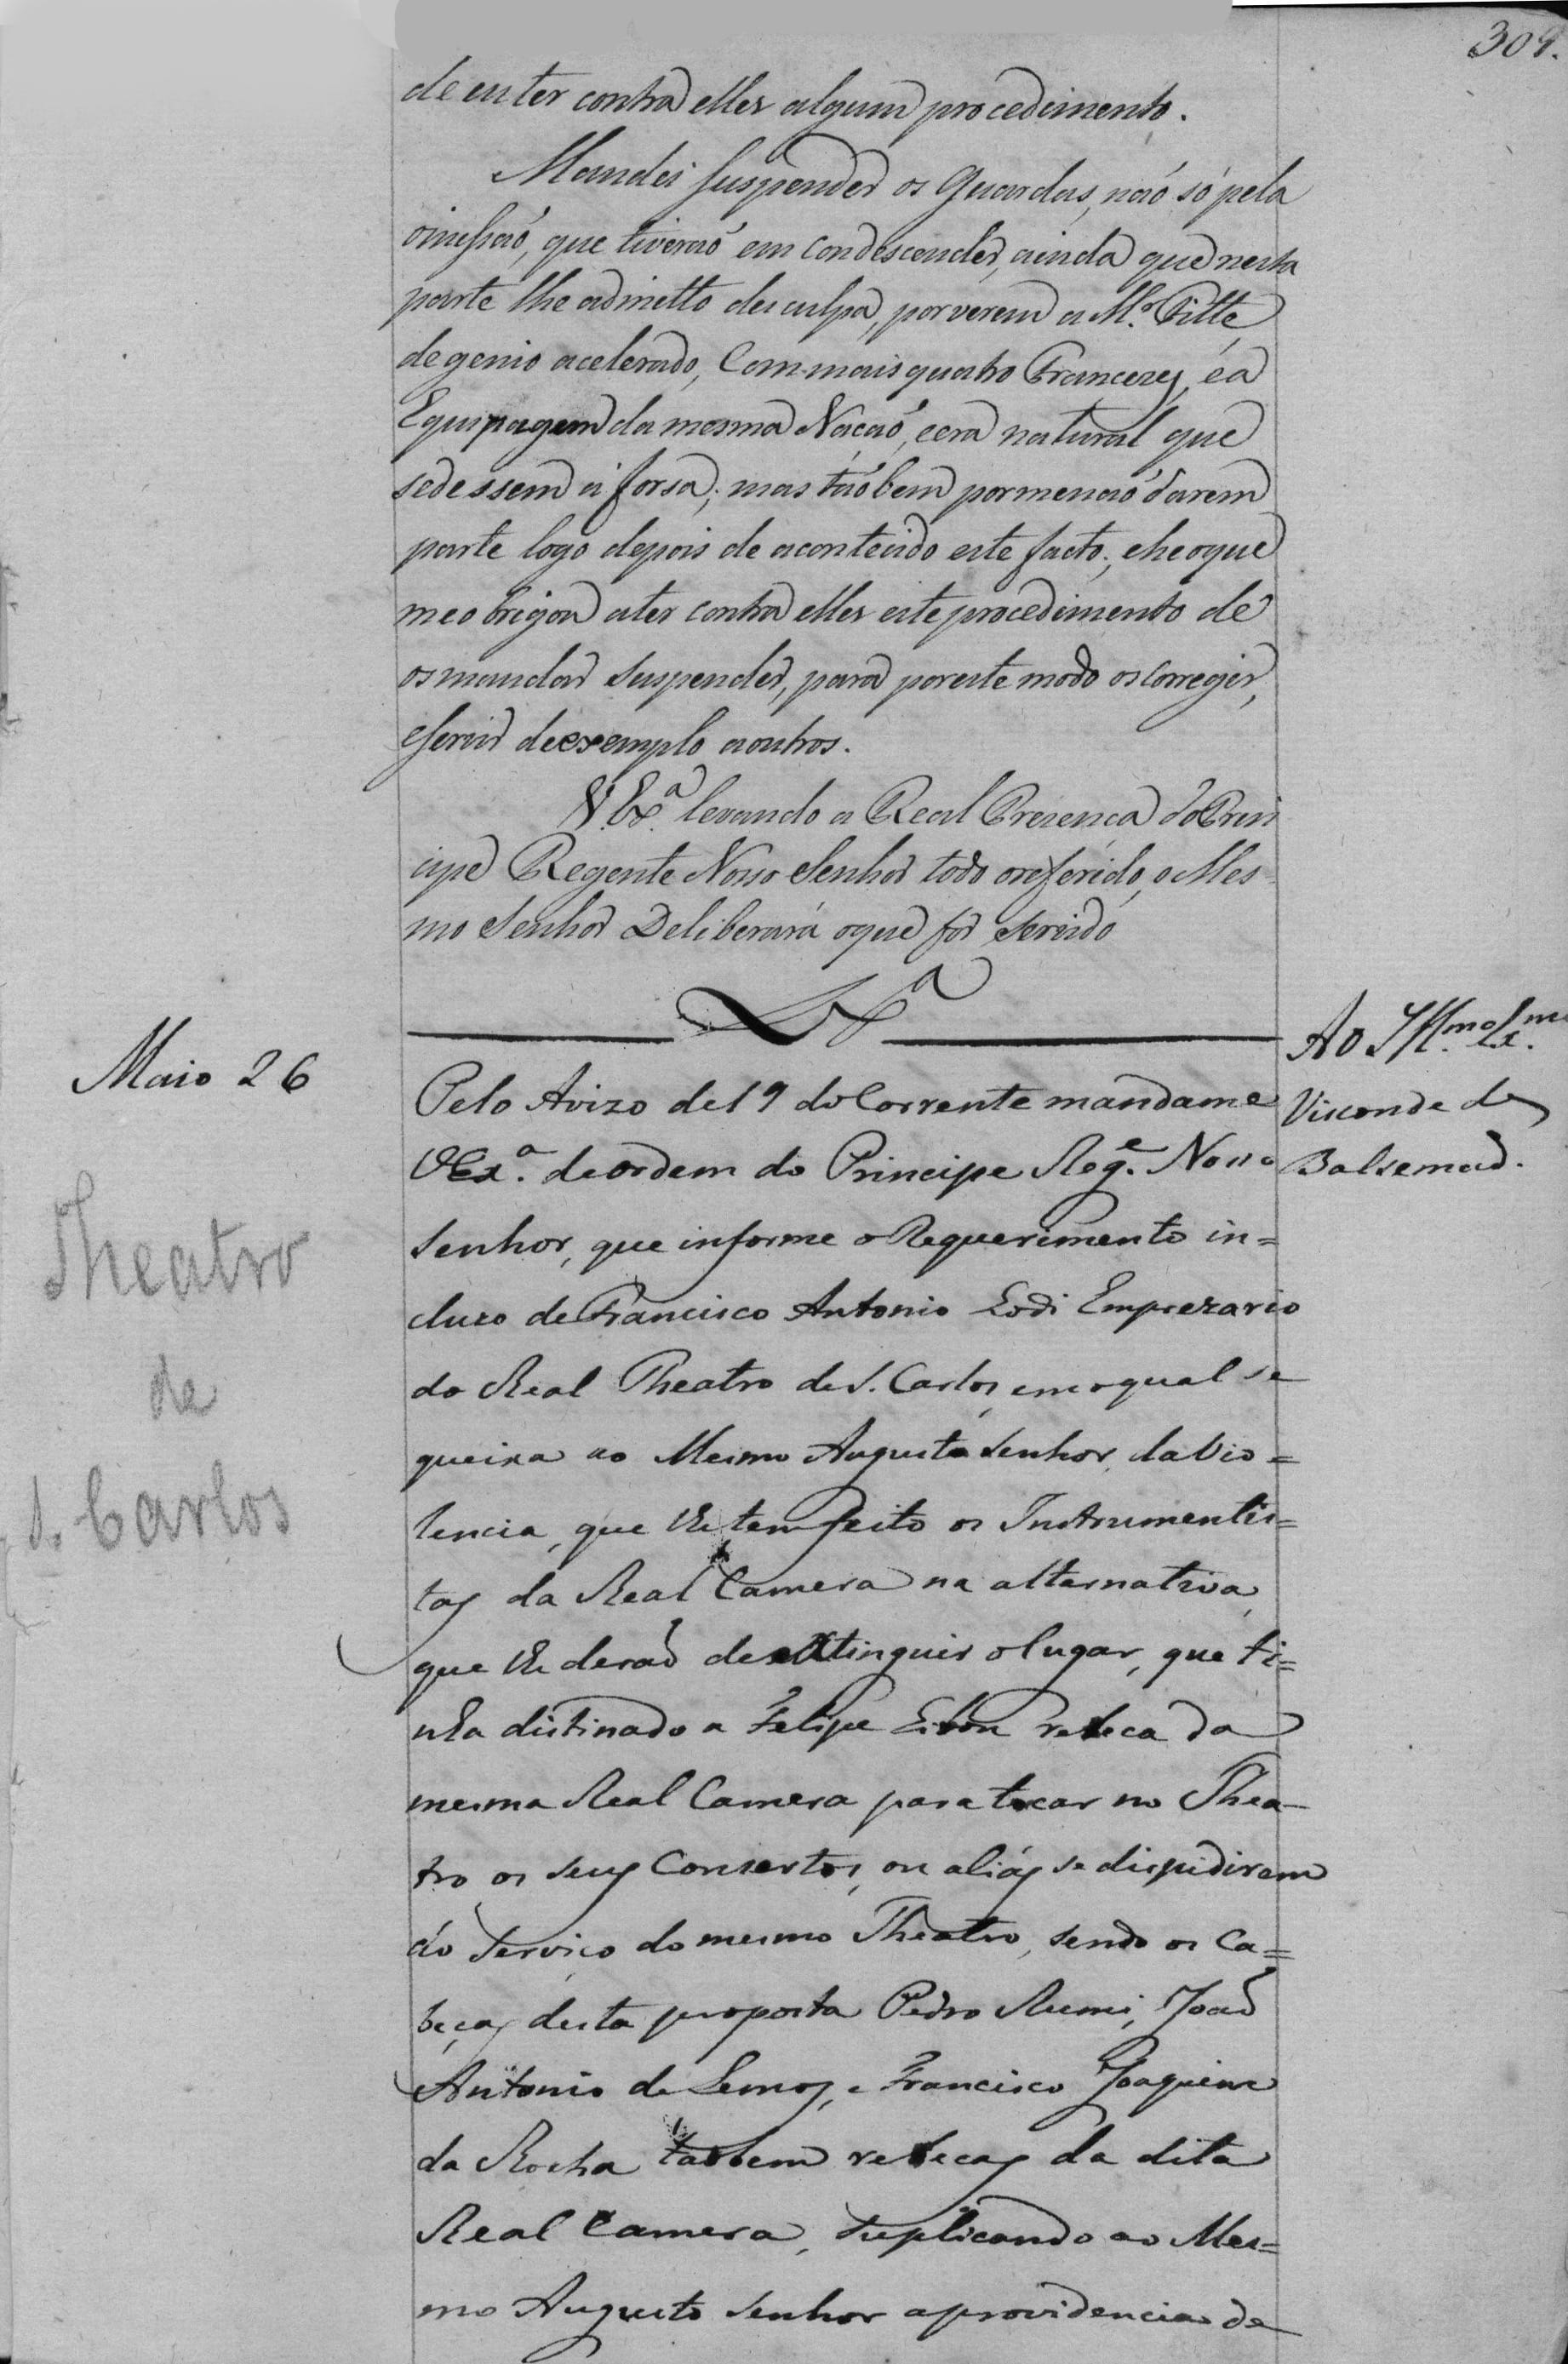 304.
de eu ter contra elles algum procedimento.
Mandei suspender os Guardas, naó só pela
omissaó, que tiveraó em condescender, ainda que nesta
parte lhe admitto desculpa, por verem a M.r Pitte,
de genio acelerado, Com mais quatro Francezes, é a
Equipagem da mesma Naçaó, e era natural que
sedessem á forsa; mas taóbem por me naó darem
parte logo depois de acontecido este facto; e he o que
me obrigou a ter contra elles este procedimento de
os mandar suspender, para por este modo os Corregir,
e servir de exemplo a outros.
V. Ex.a levando a Real Prezença do Prin
cipe Regente Nosso Senhor todo o referido, o Mes
mo Senhor Deliberará o que for servido
Maio 26
Ao Ill.mo Ex.mo
Visconde de
Balsemaõ.
Theatro
de
S. Carlos
Pelo Avizo de 19 do Corrente mandame
V Ex.a de ordem do Principe Reg.e Nosso
Senhor, que informe o Requerimento in=
cluzo de Francisco Antonio Lodi Emprezario
do Real Theatro de S. Carlos, em o qual se
queixa ao Mesmo Augusto Senhor, da Vio=
lencia, que lhe tem feito os Instrumentis=
tas da Real Camera na alternativa,
que lhe deraõ de extinguir o lugar, que ti=
nha distinado a Felipe Libon rebeca da
mesma Real Camera para tocar no Thea-
tro os seus Consertos, ou aliás se dispidirem
do Serviço do mesmo Theatro, sendo os Ca=
beças desta proposta Pedro Rumi, Joaõ
Antonio de Lemos, e Francisco Joaquim
da Rocha taobem rebecas da dita
Real Camera, suplicando ao Mes=
mo Augusto Senhor a providencia de